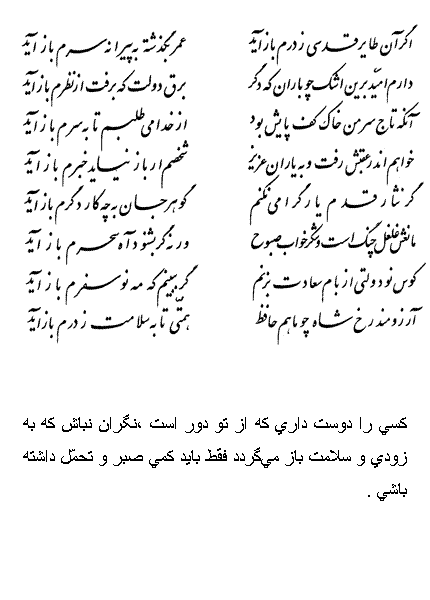 اگر آن طایر قدسی ز درم باز آید عمر بگذشته به پیرانه سرم باز آید
دارم امید برین اشک چو باران که دگر برق دولت که برفت از نظرم باز آید
آنکه تاج سر من خاک کف پایش بود از خدا می طلبم تا به سرم باز آید
خواهم اندر عقبش رفت و به یاران عزیز شخصم ار باز نیاید خبرم باز آید
گر نثار قدم یار گرامی نکنم گوهر جان به چه کار دگرم باز آید
مانعش غلغل چنگ است و شکر خواب صبوح ورنه گر بشنود آه سحرم باز آید
کوس نو دولتی از بام سعادت بزنم گر ببینم که مه نو سفرم باز آید
آرزومند رخ شاه چو ماهم حافظ همّتی تا به سلامت ز درم باز آید
كسي را دوست داري كه از تو دور است ،نگران نباش كه به
زودي و سلامت باز مي‌گردد فقط بايد كمي صبر و تحمّل داشته
باشي .